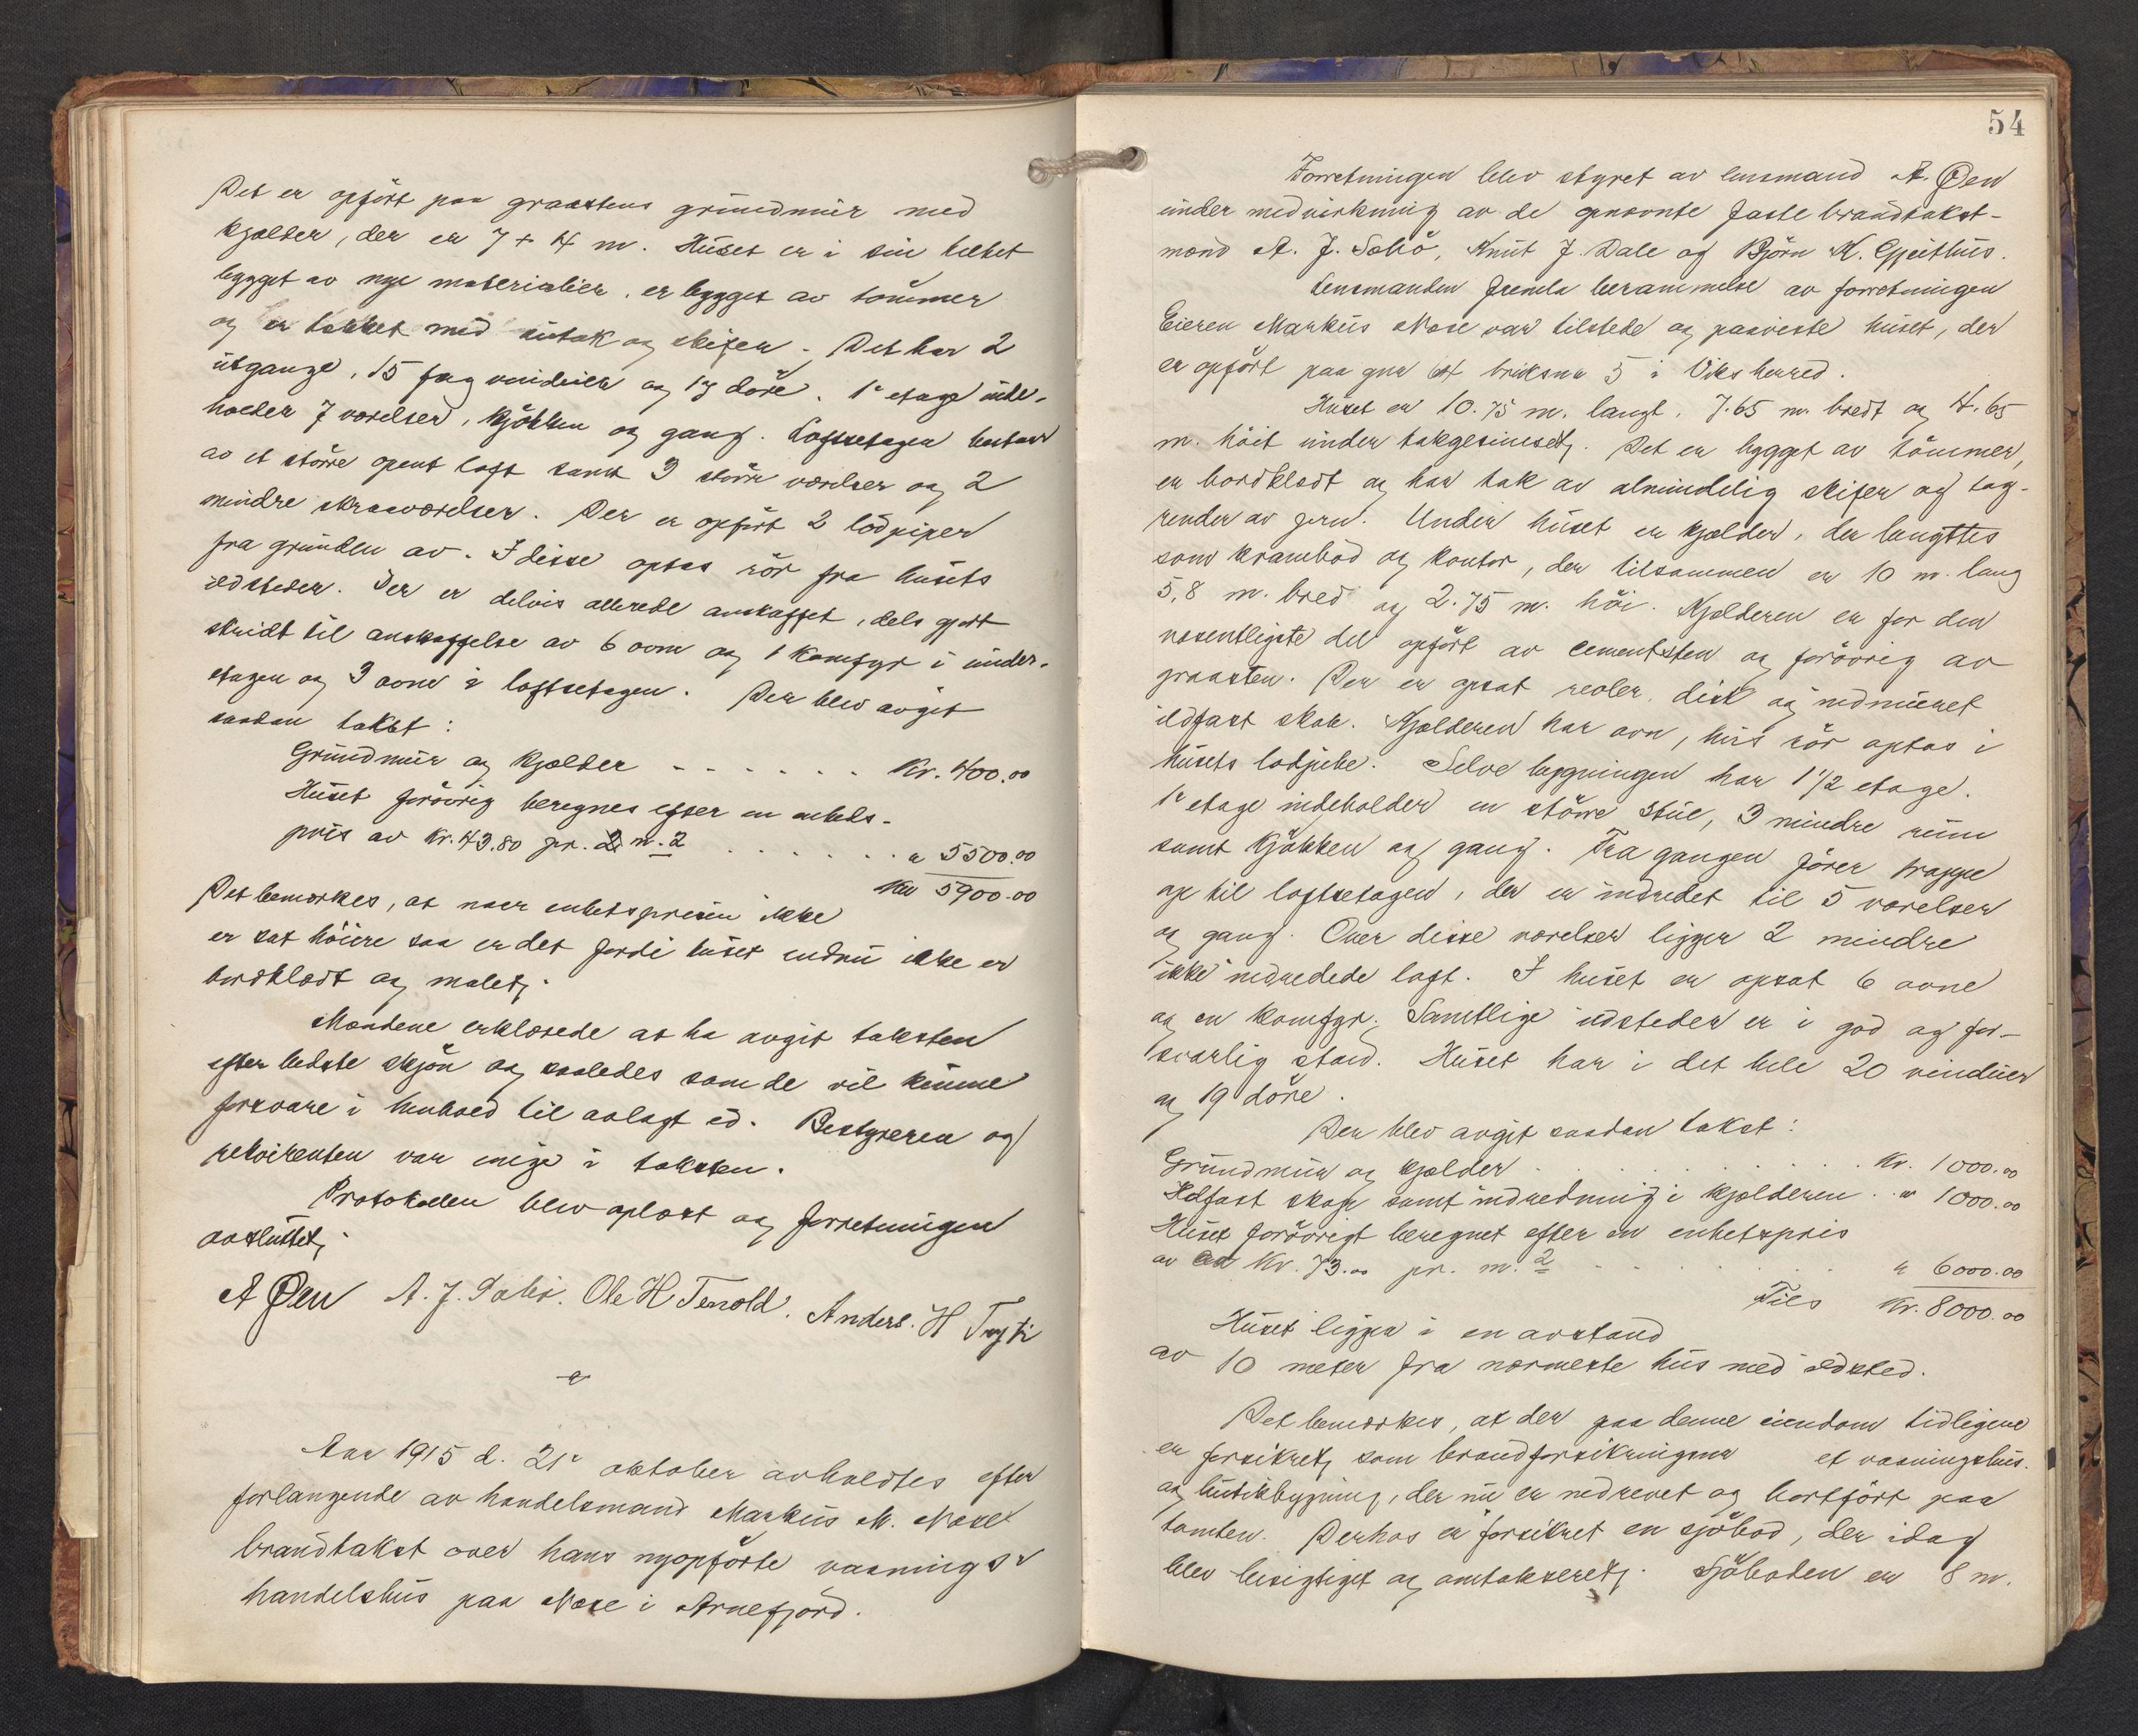 Det er opført paa graastens grundmur med
kjælder, der er 7 + 4 m. Huset er i sin helhet
bygget av nye materialier, er bygget av tømmer
og er tækket med sutak og skifer. Det har 2
utgange, 15 fag vinduer og 13 døre. 1e etage inde-
holder 7 værelser, kjøkken og gang. Loftsetagen bestaar
av et større opent loft samt 3 større værelser og 2
mindre skraaværelser. Der er opført 2 lodpiper
fra grunden av. I disse optas rør fra husets
ildsteder. Der er delvis allerede anskaffet, dels gjort
skridt til anskaffelse av 6 ovne og 1 komfyr i under-
etagen og 3 ovne i loftsetagen. Der blev avgit
saadan takst:
Grundmur og kjælder - - - - - - Kr. 400.00
Huset forøvrig beregnes efter en enhets-
pris av Kr. 43.80 pr. m.2 . . . . . . " 5500.00
Kr 5900.00
Det bemerkes, at naar enhetsprisen ikke
er sat høiere saa er det fordi huset endnu ikke er
bordklædt og malet.
Mændene erklærede at ha avgit taksten
efter bedste skjøn og saaledes som de vil kunne
forsvare i henhold til avlagt ed. Bestyreren og
rekvirenten var enige i taksten.
Protokollen blev oplæst og forretningen
avsluttet.
A Øen A. J. Sabø. Ole H Tenold. Anders. H
Aar 1915 d. 21e oktober avholdtes efter
forlangende av handelsmand Markus M. Nase
brandtakst over hans nyopførte vaanings &
handelshus paa Nese i Arnefjord.
54
Forretningen blev styret av lensmand A. Øen
under medvirkning av de opnævnte faste brandtakst-
mænd A. J. Sabø, Knut J. Dale og Bjørn K. Gjeithus.
Lensmanden fremla berammelse av forretningen
Eieren Markus Nase var tilstede og paaviste huset, der
er opført paa gnr bruksnr 5 i Viks herred.
Huset er 10.75 m. langt, 7.65 m. bredt og 4.65
m. høit under takgesimset. Det er bygget av tømmer,
er bordklædt og har tak av almindelig skifer og tag-
render av jern. Under huset er kjælder, der benyttes
som krambod og kontor, der tilsammen er 10 m. lang
5,8 m. bred og 2.75 m. høi. Kjælderen er for den
væsentligste del opført av cementsten og forøvrig av
graasten. Der er opsat reoler, disk og nedmuret
ildfast skab. Kjælderen har ovn, hvis rør optas i
husets lodpibe. Selve bygningen har 1 1/2 etage.
1e etage indeholder en større stue, 3 mindre rum
samt kjøkken og gang. Fra gangen fører trappe
op til loftsetagen, der er indredet til 5 værelser
og gang. Over disse værelser ligger 2 mindre
ikke indredede loft. I huset er opsat 6 ovne
og en komfyr. Samtlige ildsteder er i god og for-
svarlig stand. Huset har i det hele 20 vinduer
og 19 døre.
Der blev avgit saadan takst:
Grundmur og kjælder . . . . . . . Kr. 1000.00
Ildfast skap samt indredning i kjælderen . " 1000.00
Huset forøvrigt beregnet efter en enhetspris
av Kr. 73.00 pr. m.2 - - - - - - " 6000.00
Tils Kr. 8000.00
Huset ligger i en avstand
av 10 meter fra nærmeste hus med ildsted.
Det bemerkes, at der paa denne eiendom tidligere
er forsikret, som brandforsikringsnr et vaaningshus.
og butikbygning, der nu er nedrevet og bortført paa
tomten. Derhos er forsikret en sjøbod, der idag
blev besigtiget og omtakseret. Sjøboden er 8 m.